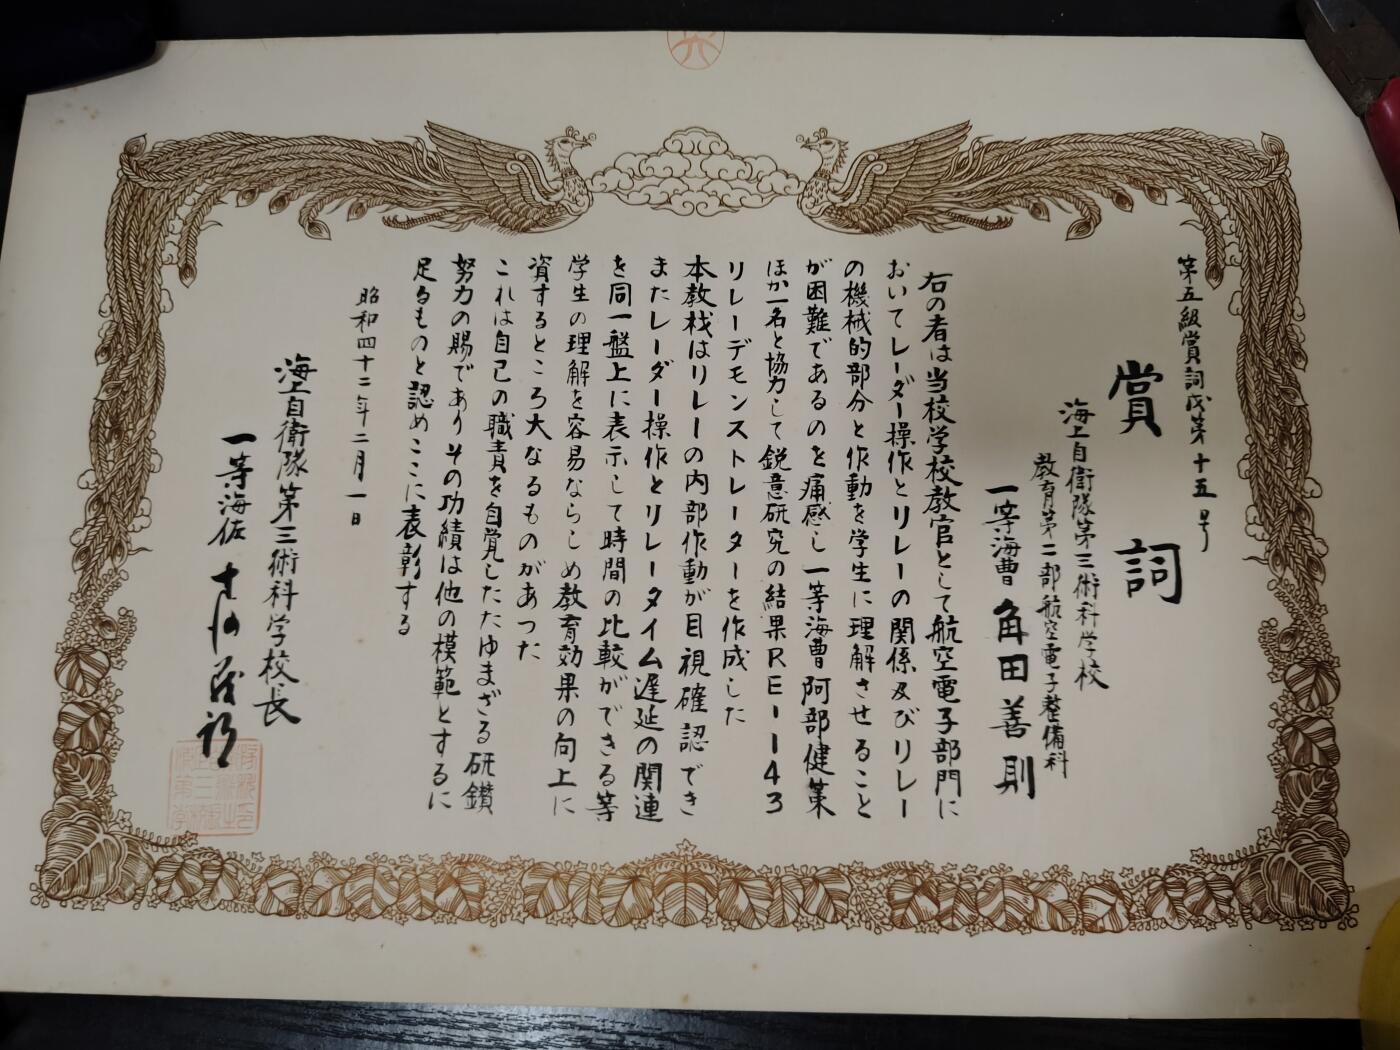 第五級賞詞氏第十五号
賞詞
海上自衛隊第三術科学校
教育第二部航空電子整備科
一等海曹 角田善則
右の者は当校学校教官として航空電子部門に
おいてレーダー操作とリレーの関係及びリレー
の機械的部分と作動を学生に理解させること
が困難であるのを痛感し一等海曹阿部健策
ほか一名と協力して鋭意研究の結果RE-143
リレーデモンストレーターを作成した
本教材はリレーの内部作動が目視確認でき
またレーダー操作とリレータイム遅延の関連
を同一盤上に表示して時間の比較ができる等
学生の理解を容易ならしめ教育効果の向上に
資するところ大なるものがあつた
これは自己の職責を自覚したたゆまざる研鑚
努力の賜でありその功績は他の模範とするに
足るものと認めここに表彰する
昭和四十二年二月一日
海上自衛隊第三術科学校長
一等海佐